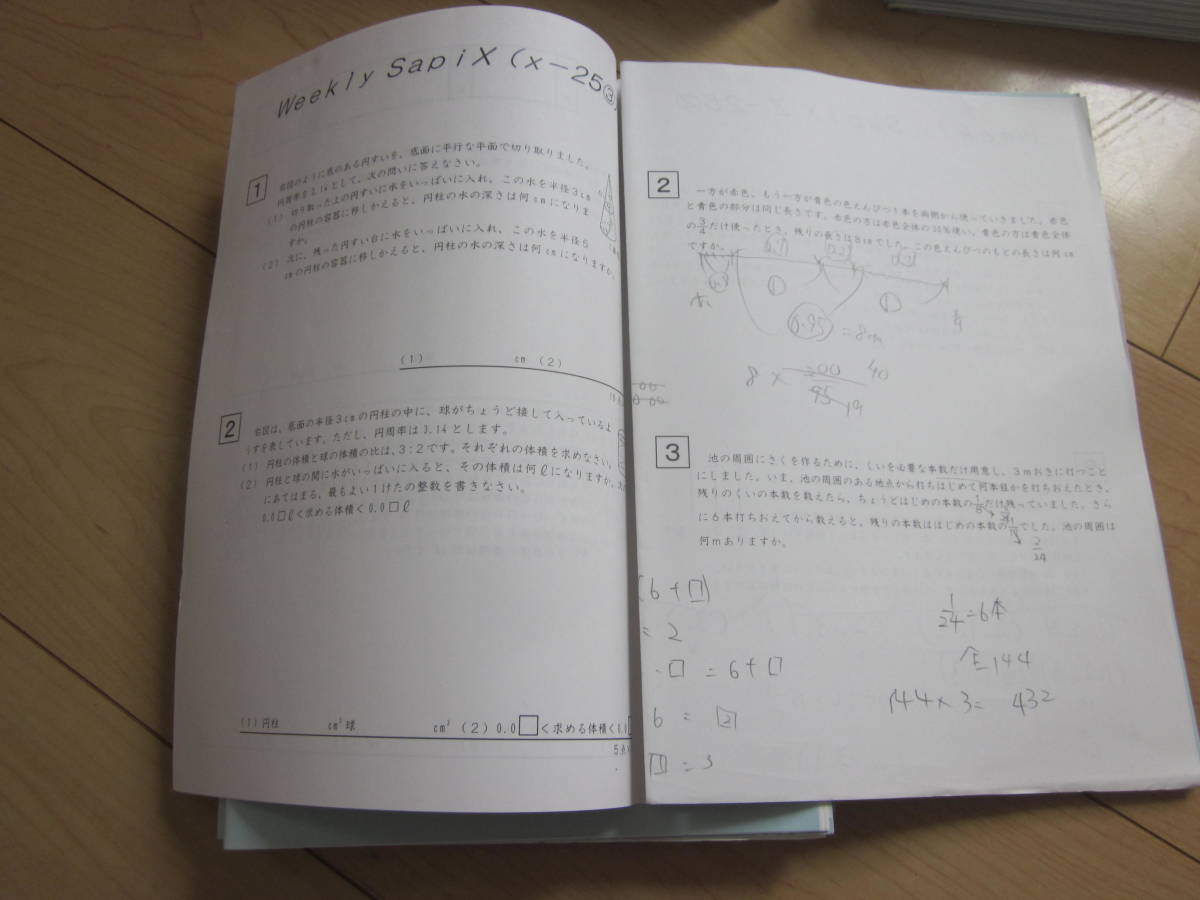 Weekly SapiX (x-25③)
1
右図のように底のある円すいを、底面に平行な平面で切り取りました。
円周率を3.14として、次の問いに答えなさい。
(1) 切り取った上の円すいに水をいっぱいに入れ、この水を半径3cm
の円柱の容器に移しかえると、円柱の水の深さは何cmになりま
すか。
(2) 次に、残った円すい台に水をいっぱいに入れ、この水を半径6
cmの円柱の容器に移しかえると、円柱の水の深さは何cmになりますか。
(1) cm (2)
2
右図は、底面の半径3cmの円柱の中に、球がちょうど接して入っているよ
うすを表しています。ただし、円周率は3.14とします。
(1) 円柱の体積と球の体積の比は、3:2です。それぞれの体積を求めなさい。
(2) 円柱と球の間に水がいっぱいに入ると、その体積は何ℓになりますか。
にあてはまる、最もよい1けたの整数を書きなさい。
0.0□ℓ<求める体積<0.0□ℓ
(1)円柱 cm³ 球 cm³ (2) 0.0□<求める体積<0.0
2
一方が赤色、もう一方が青色の色えんぴつ1本を両側から使っていきました。赤色
と青色の部分は同じ長さです。赤色の方は赤色全体の30%使い、青色の方は青色全体
の3/4だけ使ったとき、残りの長さは8cmでした。この色えんぴつのもとの長さは何cm
ですか。
0.7
0.3
①
①
赤
青
0.95 = 8cm
8 × 200/95 40/19
3
池の周囲にさくを作るために、くいを必要な本数だけ用意し、3mおきに打つこと
にしました。いま、池の周囲のある地点から打ちはじめて何本目かを打ちおえたとき、
残りのくいの本数を数えたら、ちょうどはじめの本数の1/8だけ残っていました。さら
に6本打ちおえてから数えると、残りの本数ははじめの本数の1/12でした。池の周囲は
何mありますか。
2/24
(6+□)
= 2
□ = 6+□
6 = 2
1 = 3
1/24 = 6本
全144
144 × 3 = 432